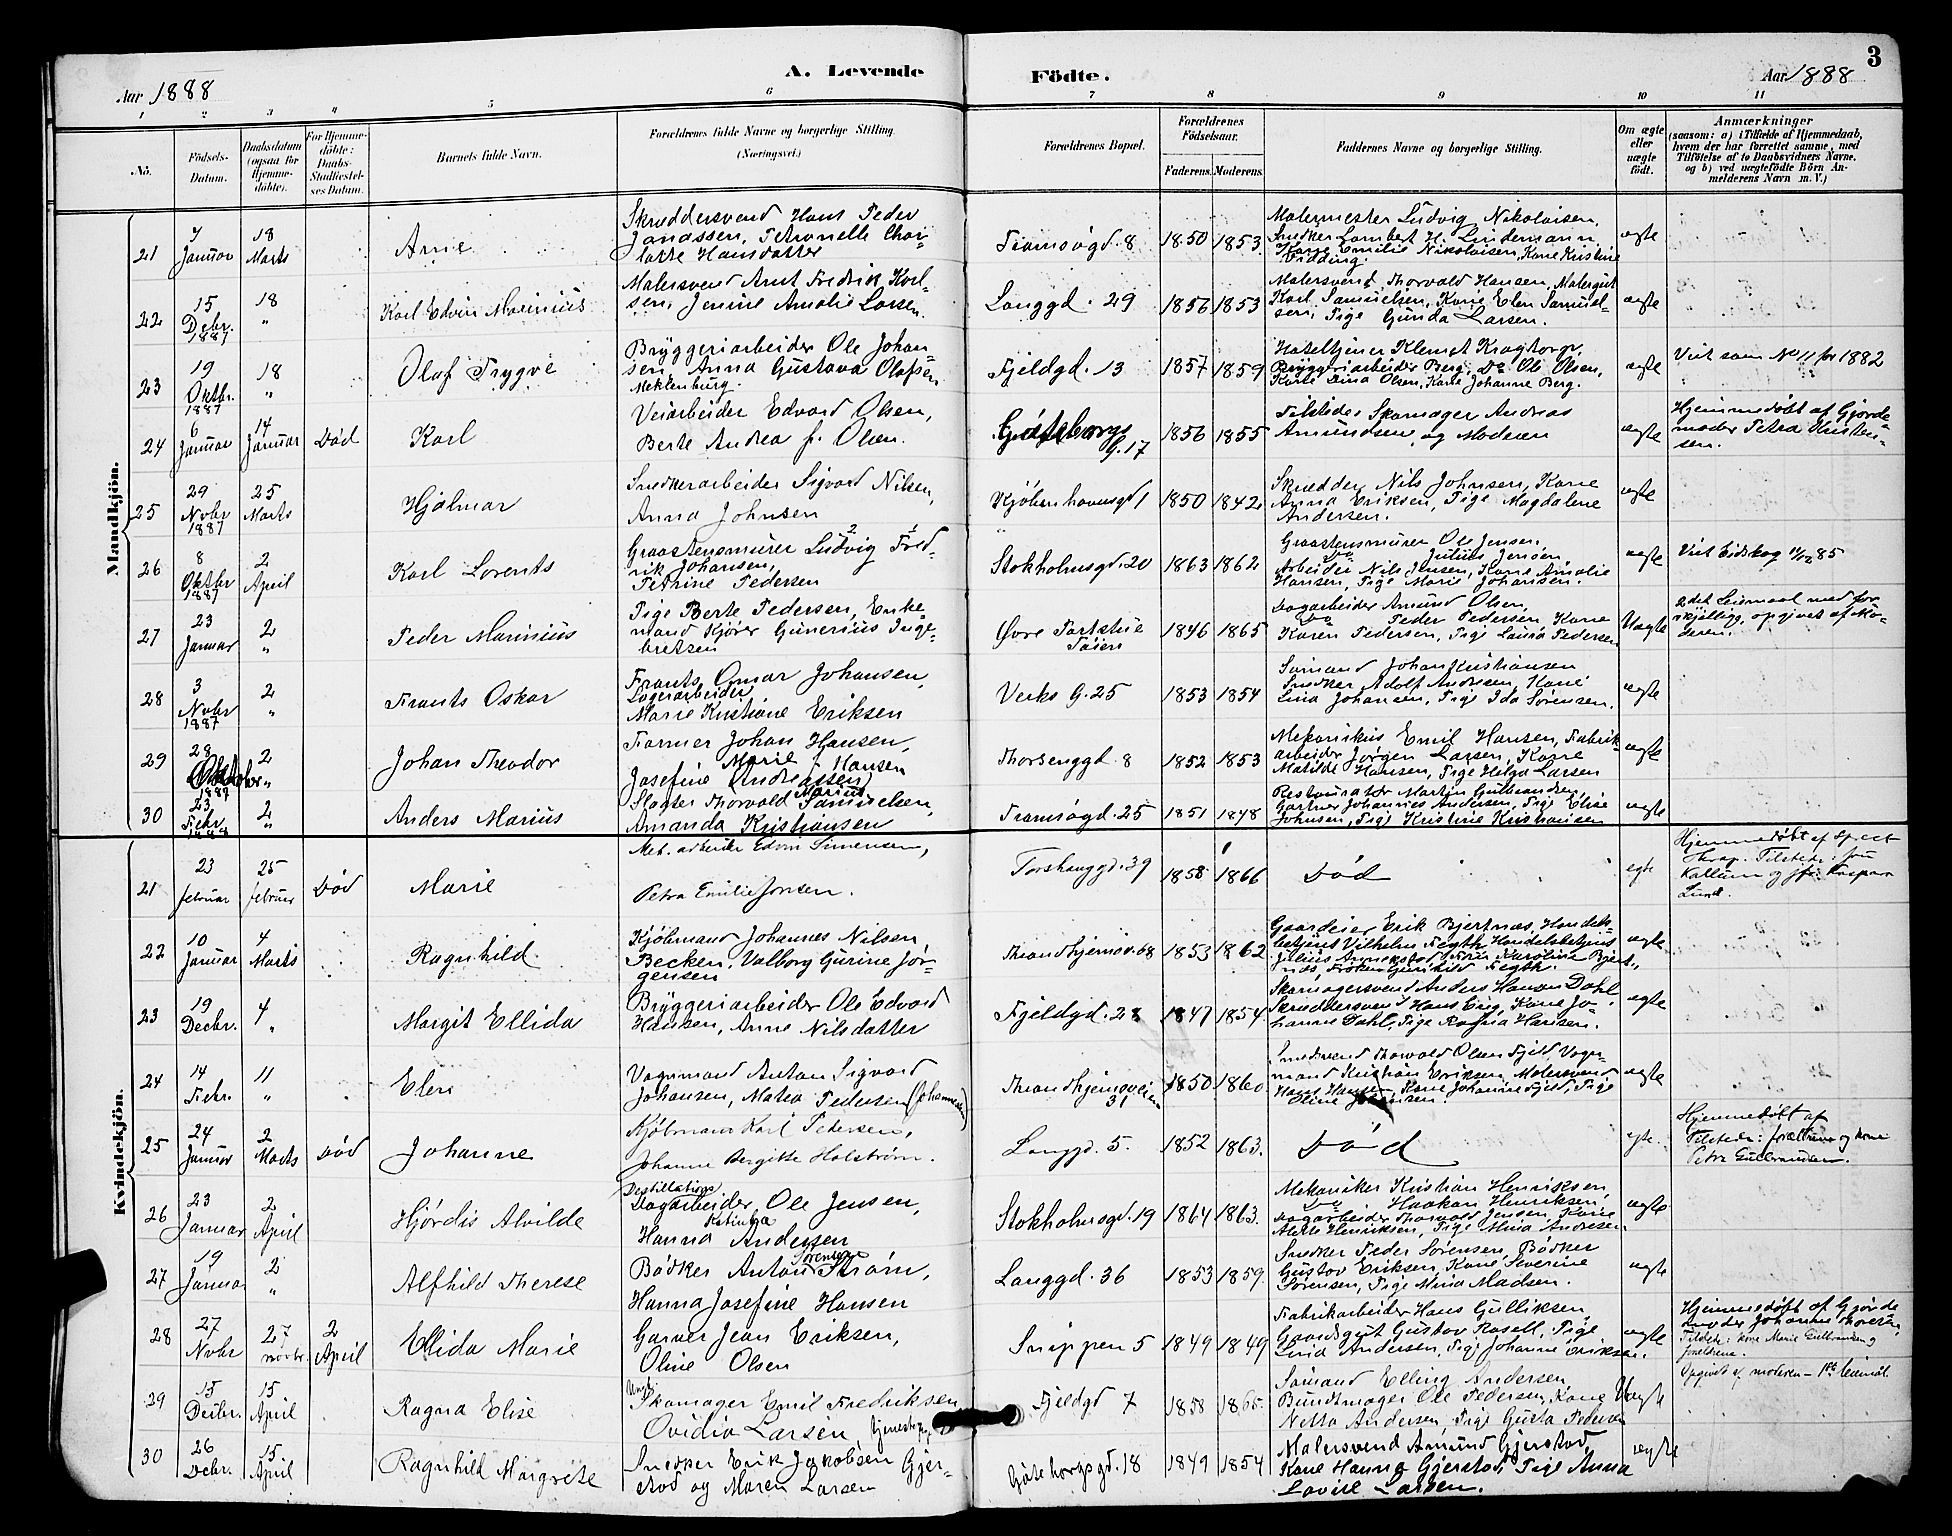 3
Aar 1888
A. Levende Födte.
Aar 1888
1 2 3 4 5 6 7 8 9 10 11
No.
Födsels-Datum.
Daabsdatum (ogsaa for Hjemmedöbte).
For Hjemmedöbte: Daabs-Stadfæstelses Datum.
Barnets fulde Navn.
Forældrenes fulde Navne og borgerlige Stilling. (Næringsvei.)
Forældrenes Bopæl.
Forældrenes Födselsaar.
Faderens. Moderens.
Faddernes Navne og borgerlige Stilling.
Om ægte eller uægte födt.
Anmærkninger
(saasom: a) i Tilfælde af Hjemmedaab, hvem der har forrettet samme, med Tilföielse af to Daabsvidners Navne, og b) ved uægtefödte Börn Anmelderens Navn m. V.)
Mandkjön.
21 7 Januar 18 Marts Arne
Skræddersvend Hans Peder
Jonassen, Petronelle Char-
lotte Hansdatter
Tromsøgd. 8 1850 1853
Malermester Ludvig Nikolaisen,
Snedker Lambert H. Lindemann,
Kone Emilie Nikolaisen, Kone Kristine
Vidding.
ægte
22 15 Decbr. 1887 18 " Karl Edvin Marinius
Malersvend Arnt Fredrik Karl-
sen, Jenine Amalie Larsen.
Langgd. 29 1856 1853
Malersvend Thorvald Hansen, Malergut
Karl Samuelsen, Kone Elen Samuel-
sen, Pige Gunda Larsen.
ægte
23 19 Oktbr. 1887 18 " Olaf Trygve
Bryggeriarbeider Ole Johan-
sen, Anna Gustava Olafsen
Meklenburg.
Fjeldgd. 13 1857 1859
Hoteltjener Klemet Kragtorp,
Bryggeriarbeider Berg, Do Ole Olsen,
Kone Lina Olsen, Kone Johanne Berg.
ægte
Viet som No 11 for 1882
24 6 Januar 14 Januar Död Karl
Veiarbeider Edvard Olsen,
Berte Andrea f. Olsen.
Gøteborgs g. 17 1856 1855
Tilstede: Skomager Andreas
Amundsen og Moderen
ægte
Hjemmedöbt af Gjorde-
moder Petra Kristen-
sen.
25 29 Novbr 1887 25 Marts Hjalmar
Snedkerarbeider Sigvard Nilsen,
Anna Johnsen
Kjøbenhavnsgd 1 1850 1842
Skrædder Nils Johnsen, Kone
Anna Eriksen, Pige Magdalene
Andersen.
ægte
26 8 Oktbr 1887 2 April Karl Lorents
Graastensmurer Ludvig Fred-
rik Johansen,
Petrine Pedersen
Stokholmsgd. 20 1863 1862
Graastensmurer Ole Jensen,
Do Julius Jensen
Arbeider Nils Jensen, Kone Amalie
Hansen, Pige Marie Johansen.
ægte
Viet Eidskog 11/12 85
27 23 Januar 2 " Peder Marinius
Pige Berte Pedersen, Enke-
mand Kjører Gunerius Inge-
bretsen
Øvre Tøien 1846 1865
Dagarbeider Amund Olsen,
Do Peder Pedersen, Kone
Karen Pedersen, Pige Laura Pedersen
Uægte
2det Leiermaal med for-
skjellige, opgivet af Mo-
deren.
28 3 Novbr 1887 2 " Frants Oskar
Frants Omar Johansen,
Lagerarbeider
Marie Kristiane Eriksen
Verks g. 25 1853 1854
Sømand Johan Kristiansen
Snedker Adolf Andresen, Kone
Lina Johansen, Pige Ida Sørensen.
ægte
29 28 Oktober 2 " Johan Theodor
Former Johan Hansen,
Marie Hansen
Josefine Andreassen
Thorsenggd. 8 1852 1853
Mekanikus Emil Hansen, Fabrik-
arbeider Jørgen Larsen, Kone
Matilde Hansen, Pige Helga Larsen
ægte
30 23 Febr. 2 " Anders Marius
Slagter Thorvald Marius Samuelsen,
Amanda Kristiansen
Tromsøgd. 25 1851 1848
Restauratør Martin Gulbrandsen,
Gartner Johannes Andersen, Pige Elise
Johnsen, Pige Kristine Kristiansen
ægte
Kvindekjön.
21 23 februar 25 februar Död Marie
Met. arbeider Edvin Simensen,
Petra Emilie Jonsen.
Torshauggd. 39 1858 1866
Död
egte
Hjemmedöbt af
22 10 Januar 4 Marts Ragnhild
Kjøbmand Johannes Nilsen
Becken, Valborg Gurine Jør-
gensen
Thrandhjemsv. 68 1853 1862
Gaardeier Erik Bjertnæs, Handels-
betjent Vilhelm Fegth, Handelsbetjent
Julius, Frue Karoline Bjert-
næs, Frøken Gunhild Fegth.
ægte
23 19 Decbr. 4 " Margit Ellida
Bryggeriarbeider Ole Edvard
Hansen, Anne Nilsdatter
Fjeldgd. 28 1847 1854
Skomagersvend Anders Hansen Dahl
Skræddersvend Hans Eng, Kone Jo-
hanne Dahl, Pige Ragna Hansen.
ægte
24 14 Febr. 11 " Elen
Vognmand Anton Sigvard
Johansen, Matea Pedersen (Johannesen)
Thrandhjemsveien 31 1850 1860
Smedsvend Thorvald Olsen Fjeld, Vogn-
mand Kristian Eriksen, Malersvend
Hans Hansen, Kone Johanne Fjeld, Pige
Oline Johansen.
ægte
25 24 Januar 2 Marts Död Johanne
Kjøbmann Karl Pedersen,
Johanne Bergitte Holstrøm.
Langgd. 5. 1852 1863.
Död
egte.
Hjemmedöbt af
Tilstede: forældrene og kone
Petra Gulbrandsen.
26 23 Januar 2 April Hjördis Alvilde
Destillations
Dagarbeider Ole Jensen,
Katinka
Hanna Andersen
Stokholmsgd. 19 1864 1863.
Mekaniker Kristian Henriksen,
Do Haakon Henriksen,
Dagarbeider Thorvald Jensen, Kone
Mette Henriksen, Pige Mina Andresen
ægte
27 19 Januar 2 " Alfhild Therese
Sørensen
Bödker Anton Strøm,
Hanna Josefine Hansen
Langgd. 36 1853 1859.
Snedker Peder Sørensen, Bødker
Gustav Eriksen, Kone Severine
Sørensen, Pige Mina Madsen.
ægte
28 27 Novbr 27 novbr. 2 April Ellida Marie
Garver Jean Eriksen,
Oline Olsen
Snippen 5 1849 1849
Fabrikarbeider Hans Gulliksen,
Gaardsgut Gustav Rasell, Pige
Lina Andersen, Pige Johanne Eriksen.
ægte
Hjemmedöbt af Gjorde-
moder Johanne Thoresen.
Tilstede: kone Marie Gulbrandsen og
forældrene.
29 15 Decbr. 15 April Ragna Elise
Ungk.
Skomager Emil Fredriksen
Ovidia Larsen,
Fjeldgd 7 1858 1865.
Sømand Elling Andersen
Bundtmager Ole Pedersen, Kone
Netta Andersen, Pige Gusta Pedersen
Uægte
Opgivet af moderen – 1ste leiermål.
30 26 Decbr. 15 April Ragnhild Margrete
Snedker Erik Jakobsen Gjer-
stad og Maren Larsen
Gøteborgsgd. 18 1849 1854
Malersvend Amund Gjerstad,
Kone Hanna Gjerstad, Pige Anna
Lovise Larsen.
ægte